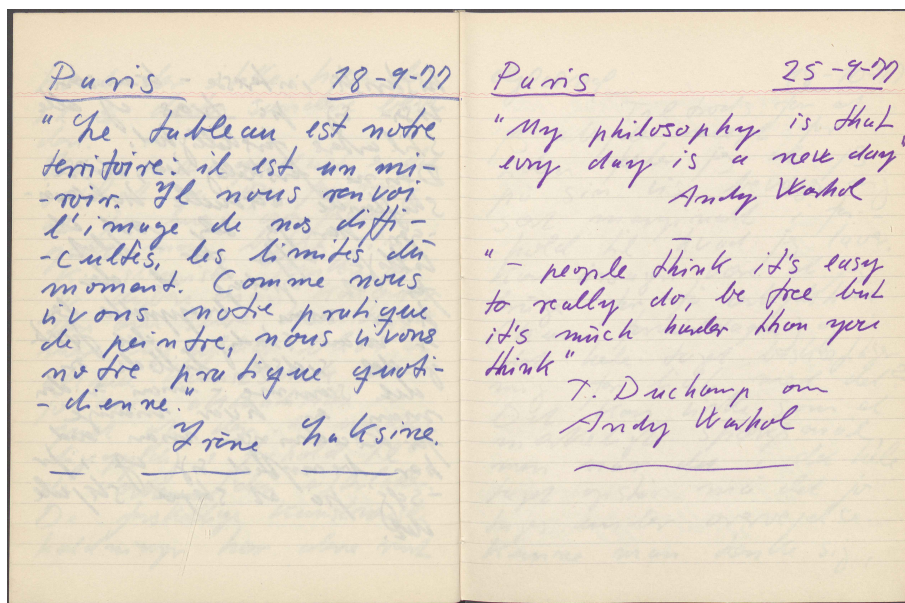 Paris 18-9-77
"Le tableau est notre
territoire: il est un mi-
-roir. Il nous renvoi
l'image de nos diffi-
-cultés, les limites du
moment. Comme nous
vivons notre pratique
de peintre, nous vivons
notre pratique quoti-
-dienne."
Irène Laksine.
Paris 25-9-77
"My philosophy is that
every day is a new day"
Andy Warhol
"- people think it's easy
to really do, be free but
it's much harder than you
think"
T. Duchamp om
Andy Warhol